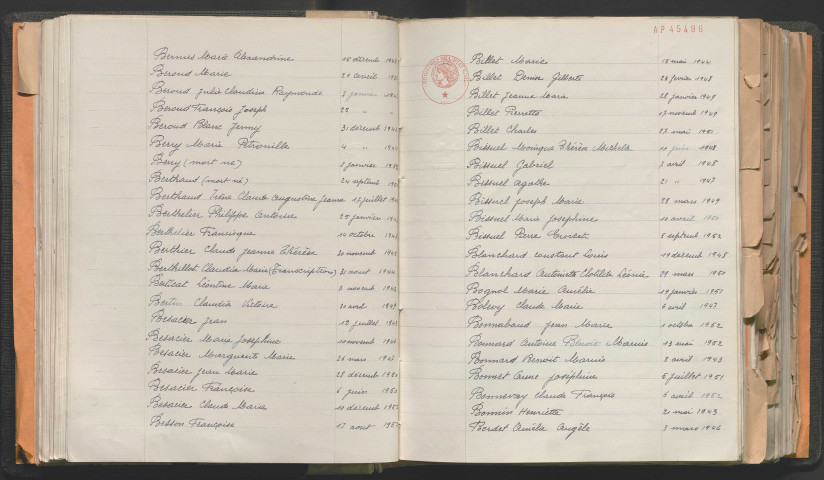 Bernus Marie Alexandrine
Beroud Marie
Beroud Julie Claudia Raymonde
Beroud François Joseph 25 " "
Beroud Blanc Jenny 31 décemb
Berry Marie Pétronille 4 "
Berry (mort né) janvier
Berthaud (mort né) 24 septemb
Berthaud Irène Claude Augustine Jeanne 17 juillet
Berthelier Philippe Antoine 25 janvier
Berthelier Francisque 10 octobre
Berthier Claude Jeanne Thérèse 30 novemb
Berthillot Claudia Marie (Transcription) 31 aout 1944
Berticat Léontine Marie novemb
Bertin Claudia Victoire 20 avril 1949
Besacier Jean 12 juillet
Besacier Marie Josephine 10 novemb
Besacier Marguerite Marie 26 mars
Besacier Jean Marie 28 décemb
Besacier Françoise 6 juin 1950
Besacier Claude Marie 10 décemb
Besson Françoise 17 aout
AP 45496
Billet Marie 18 mai 1944
Billet Denise Gilberte 26 février 1948
Billet Jeanne Marie 28 janvier 1949
Billet Pierrette 17 novemb 1949
Billet Charles 27 mai 1951
Bissuel Monique Thérèse Michèle 10 juin 1948
Bissuel Gabriel 7 avril 1945
Bissuel Agathe 21 " 1947
Bissuel Joseph Marie 28 mars 1949
Bissuel Marie Josephine 10 avril 1950
Bissuel Pierre 5 septemb 1952
Blanchard Constant Louis 19 décemb 1945
Blanchard Antoinette Clotilde Léonie 29 mars 1950
Bognol Marie Amélie 19 janvier 1950
Bolevy Claude Marie 6 avril 1947
Bonnabaud Jean Marie 1 octobre 1952
Bonnard Antoine Benoit Marius 13 mai 1952
Bonnard Benoit Marius 3 avril 1943
Bonnet Anne Joséphine 5 juillet 1951
Bonnevay Claude François 6 avril 1952
Bonnin Henriette 21 mai 1943
Bordet Amélie Angèle 3 mars 1946